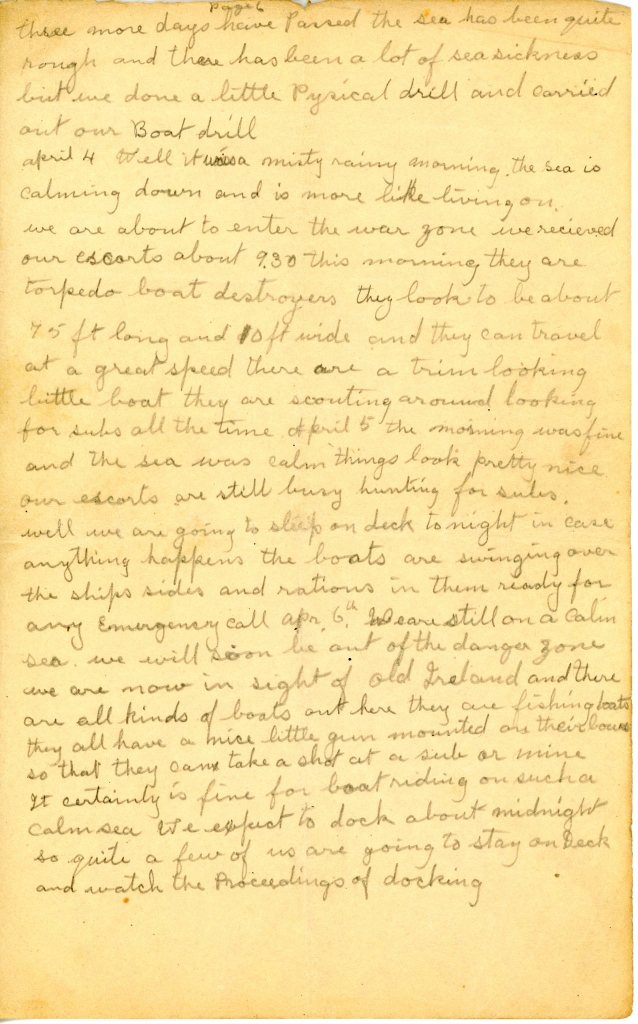 Page 6
three more days have Passed the sea has been quite
rough and there has been a lot of seasickness
but we done a little Pysical drill and carried
out our Boat drill
april 4 Well it was a misty rainy morning. the sea is
calming down and is more like living on.
we are about to enter the war zone we recieved
our escorts about 9.30 this morning they are
torpedo boat destroyers they look to be about
75 ft long and 10 ft wide and they can travel
at a great speed there are a trim looking
little boat they are scouting around looking
for subs all the time April 5 the morning was fine
and the sea was calm things look pretty nice
our escorts are still busy hunting for subs.
well we are going to sleep on deck to night in case
anything happens the boats are swinging over
the ships sides and rations in them ready for
any Emergency call apr. 6.th We are still on a calm
sea. we will soon be out of the danger zone
we are now in sight of old Ireland and there
are all kinds of boats out here they are fishing boats
they all have a nice little gun mounted on their bows
so that they can take a shot at a sub or mine
It certainly is fine for boat riding on such a
calm sea We expect to dock about midnight
so quite a few of us are going to stay on Deck
and watch the Proceedings of docking